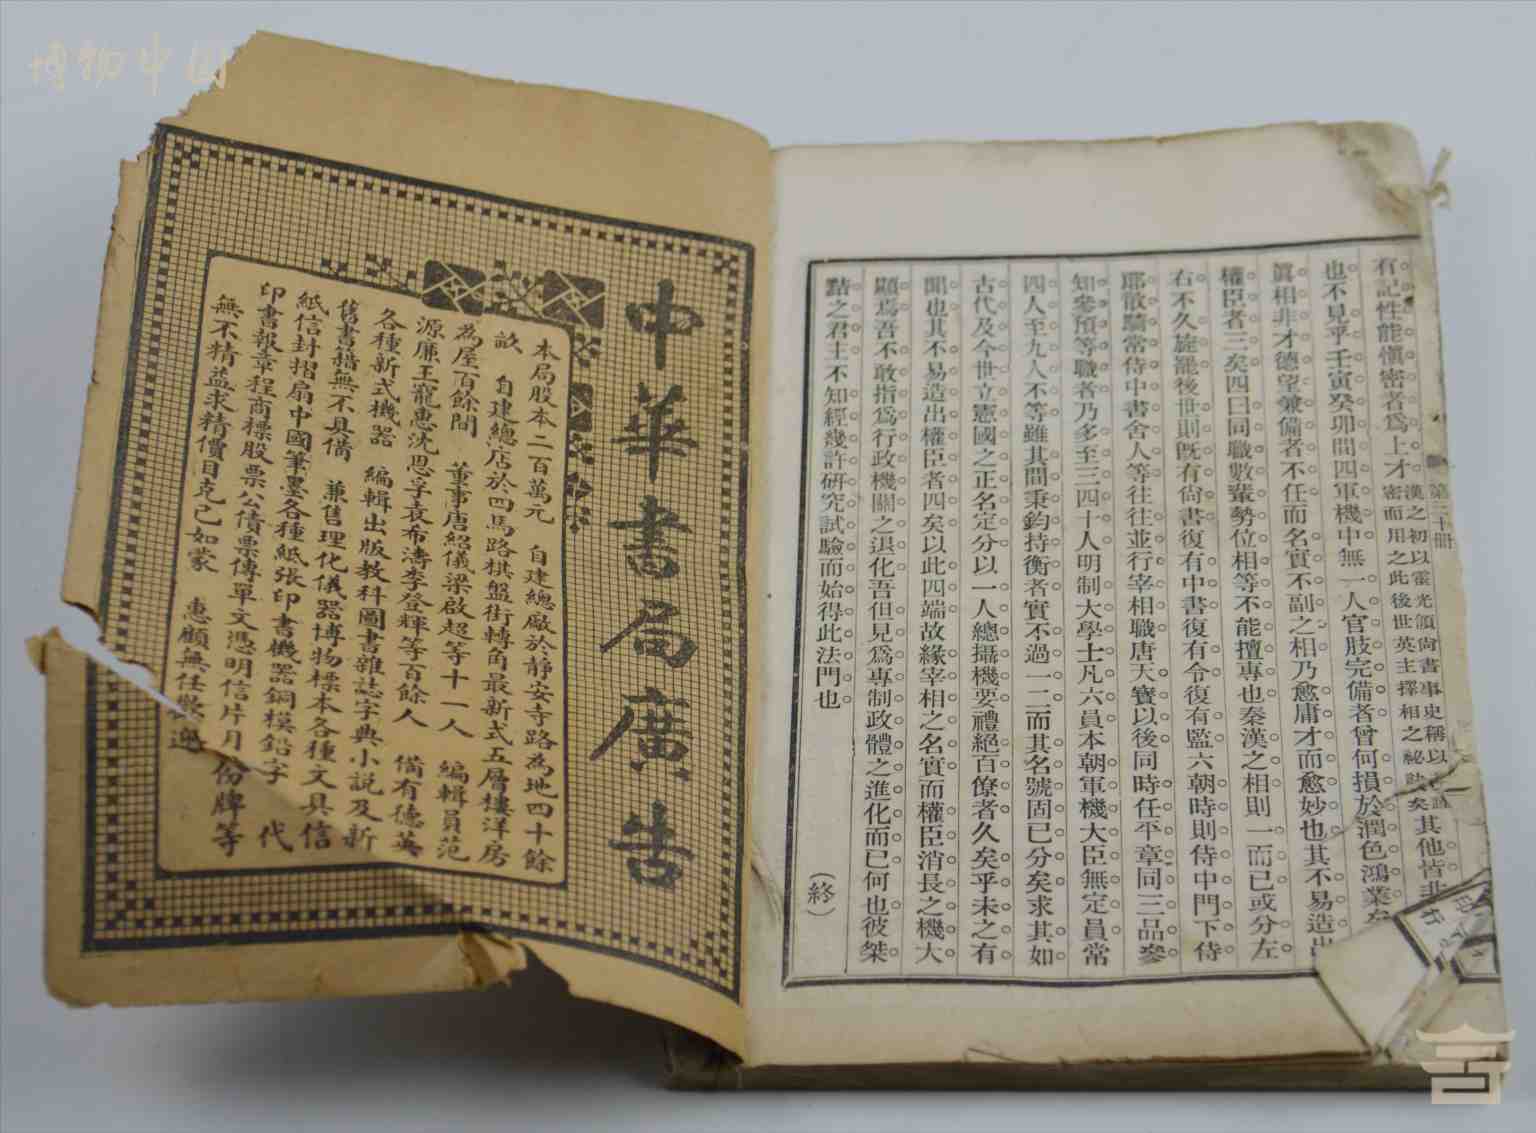 博物中国
第三十冊
有記性能愼密者爲上才
漢之初以霍光領尚書事史稱以
密而用之此後世英主擇相之祕訣矣
其他皆非
也不見乎壬寅癸卯間四軍機中無一人官肢完備者曾何損於潤色鴻業
眞相非才德望兼備者不任而名實不副之相乃愈庸才而愈妙也其不易造出
權臣者三矣四曰同職數輩勢位相等不能擅專也秦漢之相則一而已或分左
右不久旋罷後世則既有尙書復有中書復有令復有監六朝時則侍中門下侍
郎散騎常侍中書舍人等往往並行宰相職唐天寶以後同時任平章同三品參
知參預等職者乃多至三四十人明制大學士凡六員本朝軍機大臣無定員常
四人至九人不等雖其間秉鈞持衡者實不過一二而其名號固已分矣求其如
古代及今世立憲國之正名定分以一人總攝機要禮絕百僚者久矣乎未之有
聞也其不易造出權臣者四矣以此四端故緣宰相之名實而權臣消長之機大
顯焉吾不敢指爲行政機關之退化吾但見爲專制政體之進化而已何也彼桀
黠之君主不知經幾許研究試驗而始得此法門也
(終)
中華書局廣告
本局股本二百萬元 自建總廠於靜安寺路為地四十餘
畝 自建總店於四馬路棋盤街轉角最新式五層樓洋房
為屋百餘間 董事唐紹儀梁啟超等十一人 編輯員范
源廉王寵惠沈思孚袁希濤李登輝等百餘人 備有德英
各種新式機器 編輯出版教科圖書雜誌字典小說及新
舊書籍無不具備 兼售理化儀器博物標本各種文具信
紙信封摺扇中國筆墨各種紙張印書機器銅模鉛字 代
印書報章程商標股票公債票傳單文憑明信片月份牌等
無不精益求精價目克己如蒙 惠顧無任歡迎